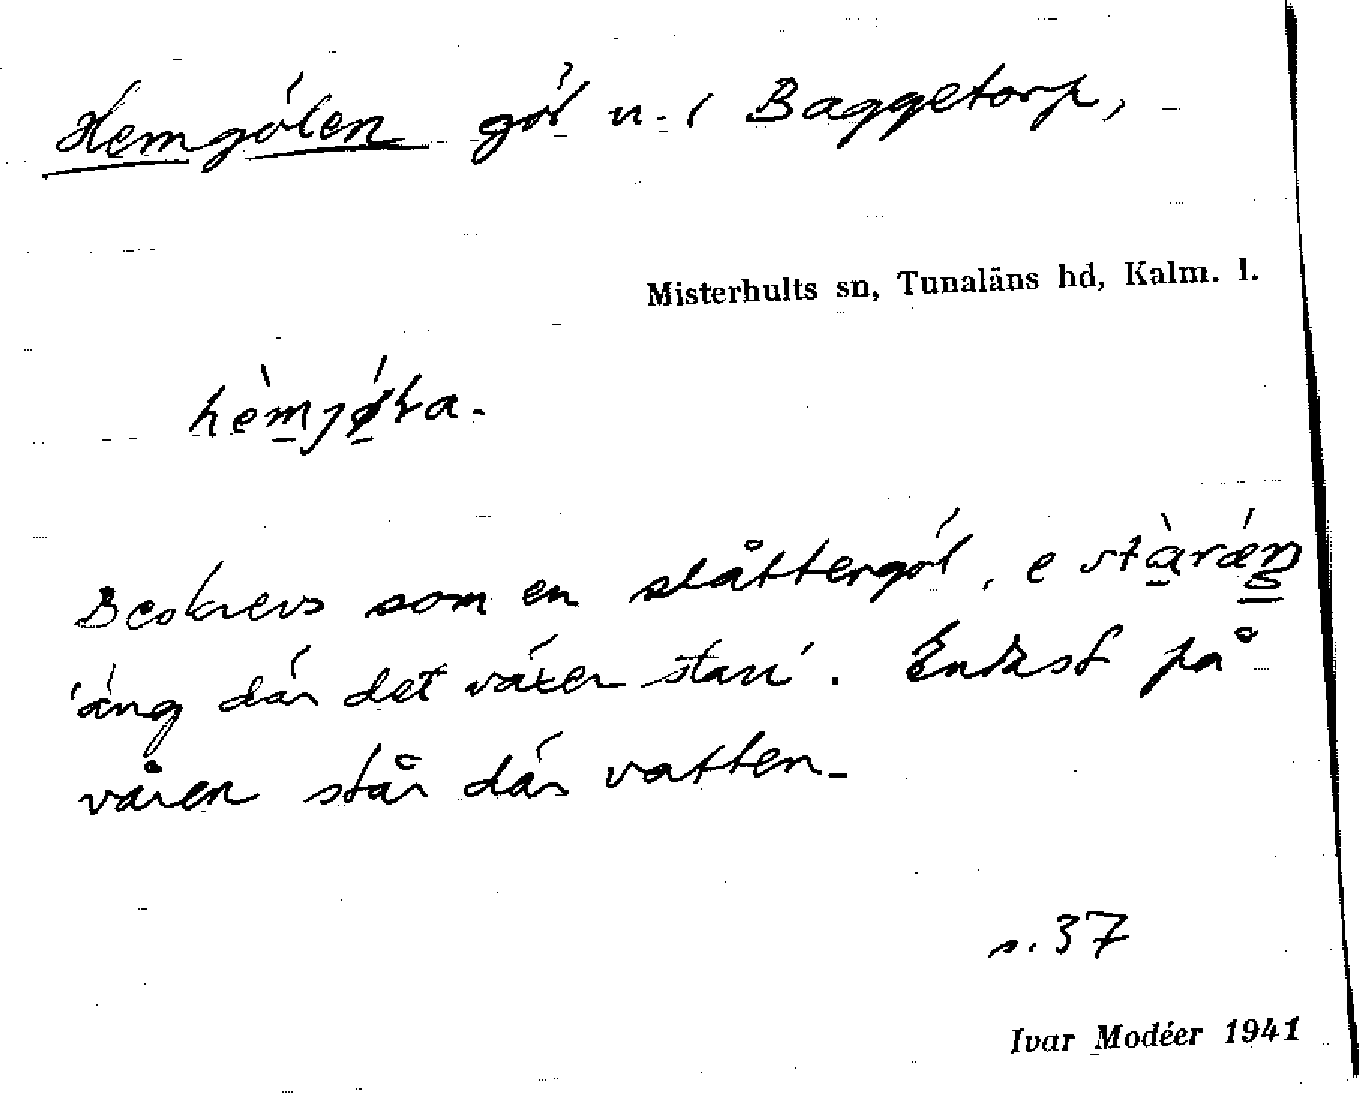 Hemgölen göl n. i Baggetorp,
Misterhults sn, Tunaläns hd, Kalm. l.
hèmjǿ̣ḷa.
Beskrevs som en slåttergöl, e stàrǽŋ
'äng där det växer starr'. Endast på
våren står där vatten.
s. 37
Ivar Modéer 1941